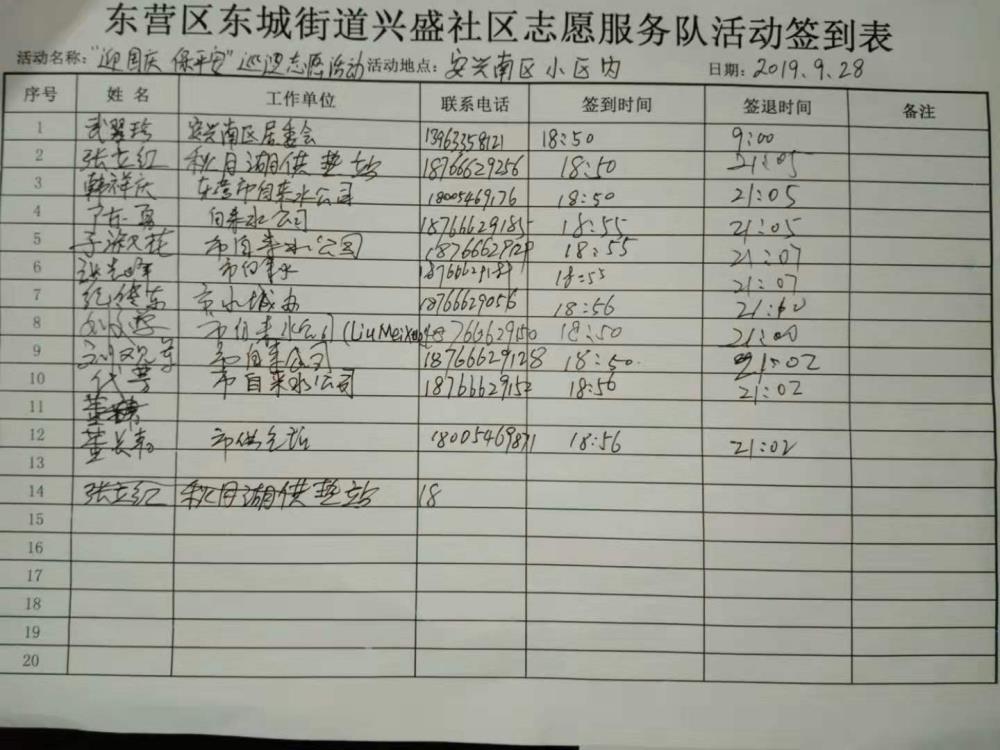 东营区东城街道兴盛社区志愿服务队活动签到表
活动名称：“迎国庆 保平安”巡逻志愿活动 活动地点：安兴南区小区内 日期：2019.9.28
序号 姓名 工作单位 联系电话 签到时间 签退时间 备注
1 武翠珍 安兴南区居委会 13963358121 18:50 9:00
2 张立红 秋月湖供热站 18766629256 18:50 21:05
3 韩祥庆 东营市自来水公司 18005469176 18:50 21:05
4 自来水公司 18766629185 18:55 21:05
5 市自来水公司 18:55 21:07
6 市自来水 18:55 21:07
7 18766629056 18:56
8 市自来水公司 18:50 21:00
9 刘观军 市自来公司 18766629128 18:50. 21:02
10 市自来水公司 18766629152 18:56 21:02
11
12 董长春 18005469871 18:56 21:02
13
14 张立红 秋月湖供热站 18
15
16
17
18
19
20